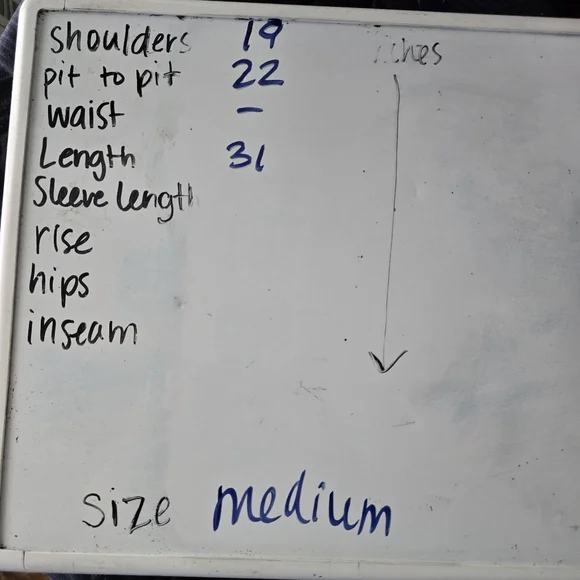 shoulders 19
pit to pit 22
waist –
Length 31
Sleeve length
rise
hips
inseam
size medium